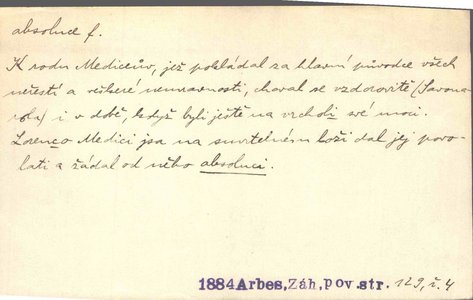 absoluce f.
K rodu Mediceův, jež pokládal za hlavní původce všech
neřestí a veškeré nemravnosti, choval se vzdorovitě (Savona-
rola) i v době, když byli ještě na vrcholi své moci.
Lorenco Medici jsa na smrtelném loži dal jej povo-
lati a žádal od něho absoluci.
1884 Arbes, Záh. pov. str. 129, č. 4